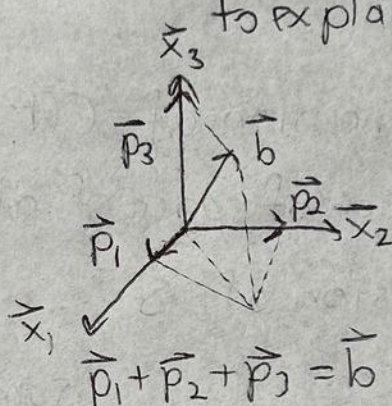 to expla
x⃗₃
p⃗₃ b⃗
p⃗₂ x⃗₂
p⃗₁
x⃗₁
p⃗₁ + p⃗₂ + p⃗₃ = b⃗